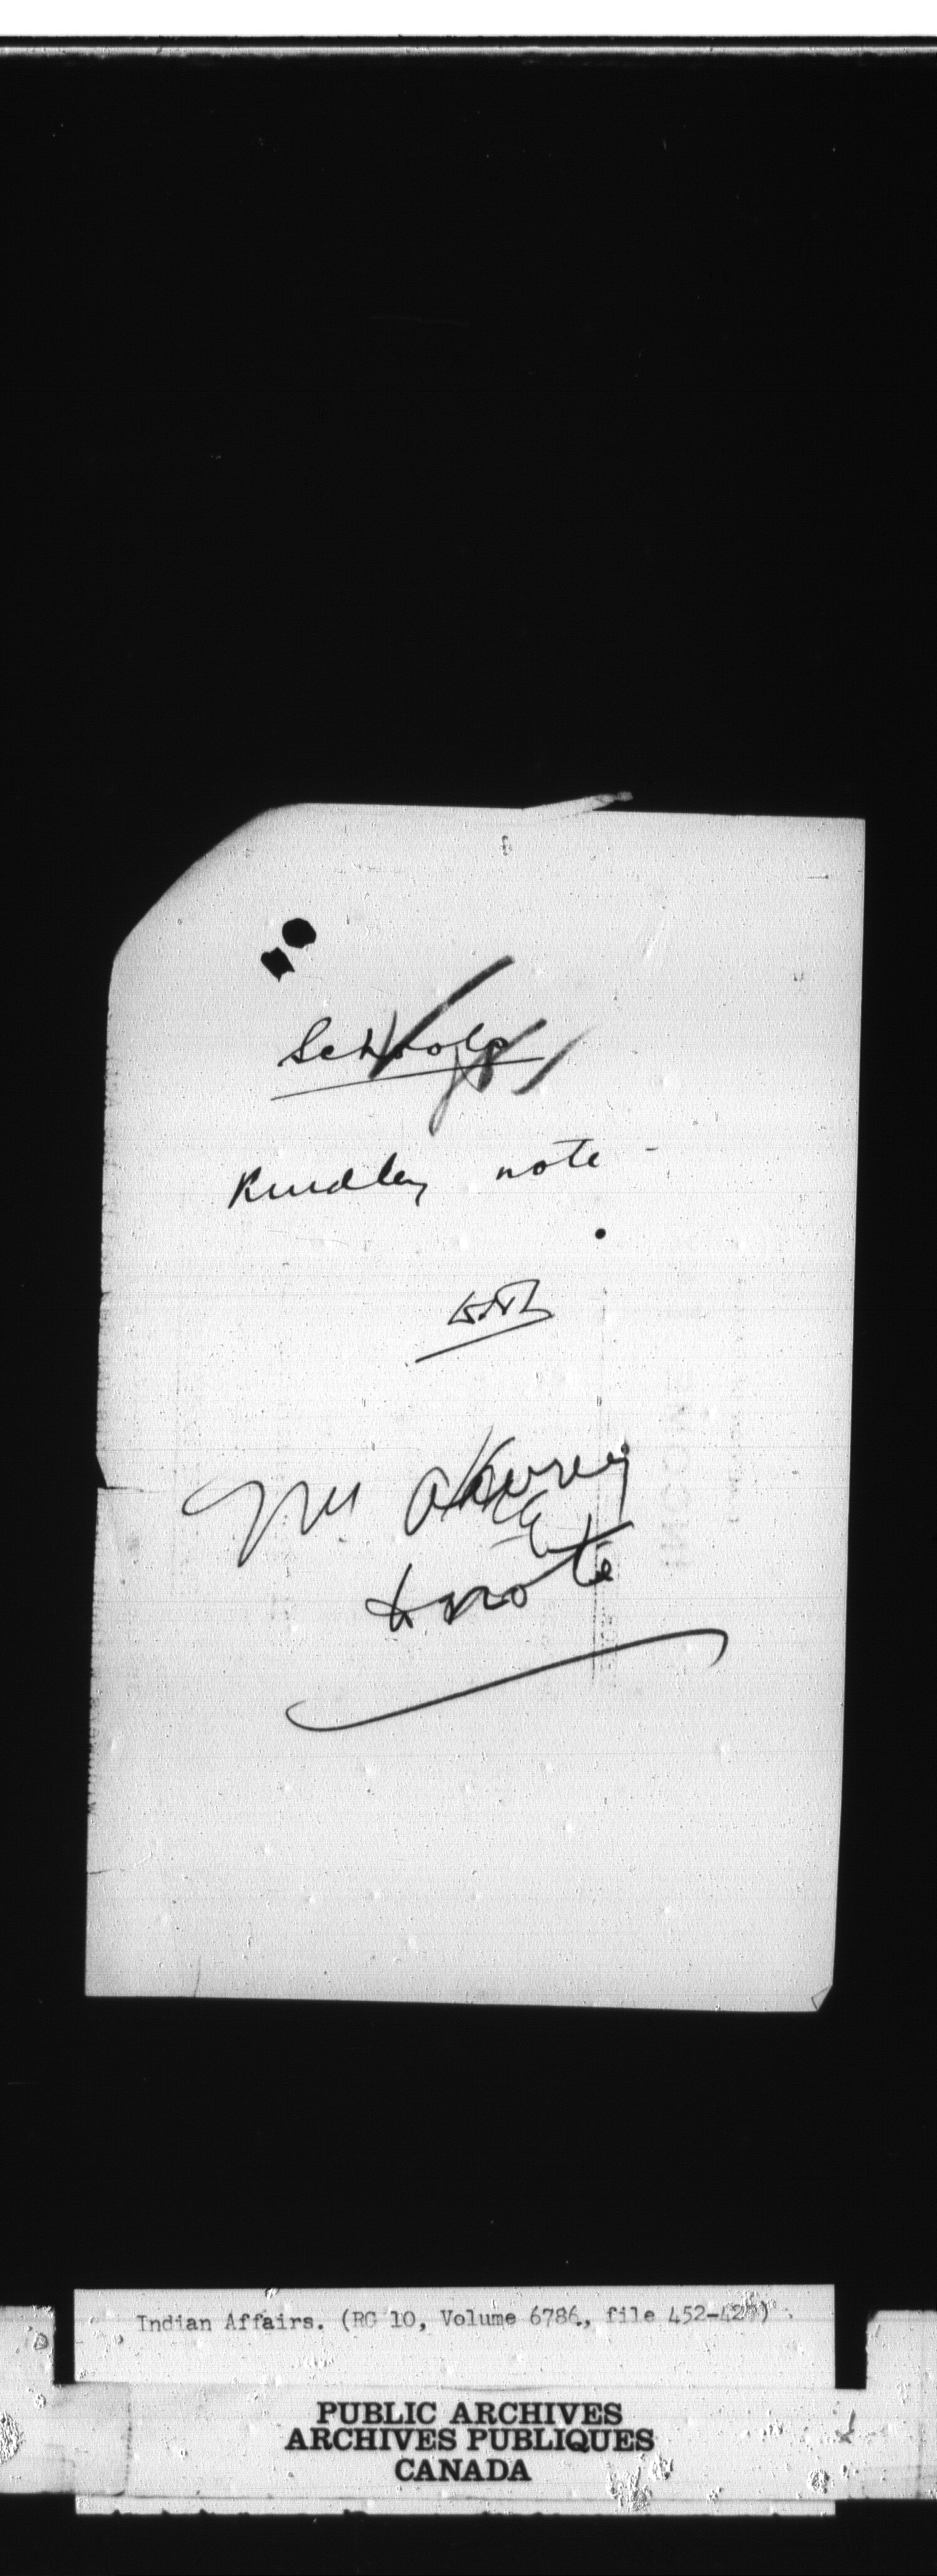 Schools
Kindly note -
Mr
to note
Indian Affairs. (RG 10, Volume 6786, file 452-42)
PUBLIC ARCHIVES
ARCHIVES PUBLIQUES
CANADA